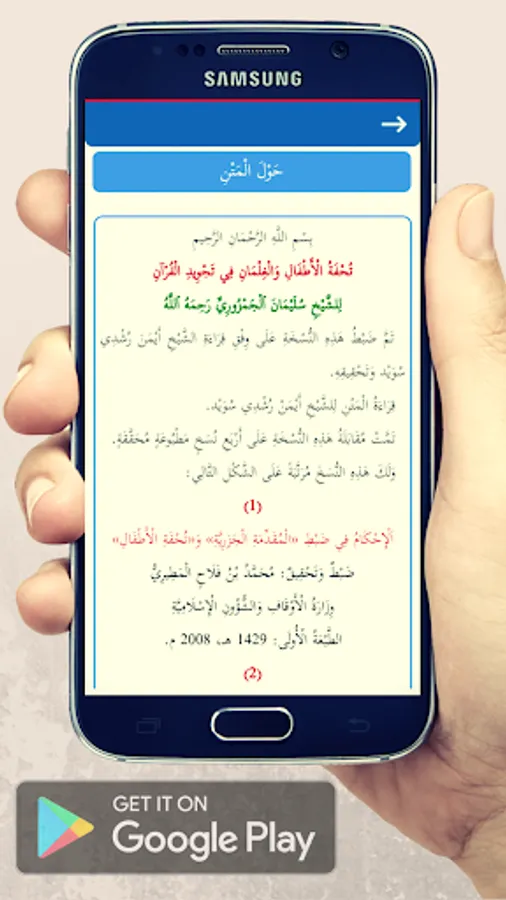 SAMSUNG
→
حَوْلَ الْمَتْنِ
بِسْمِ اللَّهِ الرَّحْمَانِ الرَّحِيمِ
تُحْفَةُ الْأَطْفَالِ وَالْغِلْمَانِ فِي تَجْوِيدِ الْقُرْآنِ
لِلشَّيْخِ سُلَيْمَانَ ٱلْجَمْزُورِيِّ رَحِمَهُ ٱللَّهُ
تَمَّ ضَبْطُ هَذِهِ النُّسْخَةِ عَلَى وِفْقِ قِرَاءَةِ الشَّيْخِ أَيْمَنَ رُشْدِي
سُوَيْد وَتَحْقِيقِهِ.
قِرَاءَةُ الْمَتْنِ لِلشَّيْخِ أَيْمَنْ رُشْدِي سُوَيْد.
تَمَّتْ مُقَابَلَةُ هَذِهِ النُّسْخَةِ عَلَى أَرْبَعِ نُسَخٍ مَطْبُوعَةٍ مُحَقَّقَةٍ.
وَلَكَ هَذِهِ النُّسَخَ مُرَتَّبَةً عَلَى الشَّكْلِ التَّالِي:
(1)
ٱلْإِحْكَامُ فِي ضَبْطِ «الْمُقَدِّمَةِ الْجَزَرِيَّةِ» وَ«تُحْفَةِ الْأَطْفَالِ»
ضَبْطٌ وَتَحْقِيقٌ: مُحَمَّدُ بْنُ فَلَاحِ الْمَطِيرِيُّ
وِزَارَةُ الْأَوْقَافِ وَالشُّؤُونِ الْإِسْلَامِيَّةِ
الطَّبْعَةُ الْأُولَى: 1429 هـ، 2008 م.
(2)
GET IT ON
Google Play